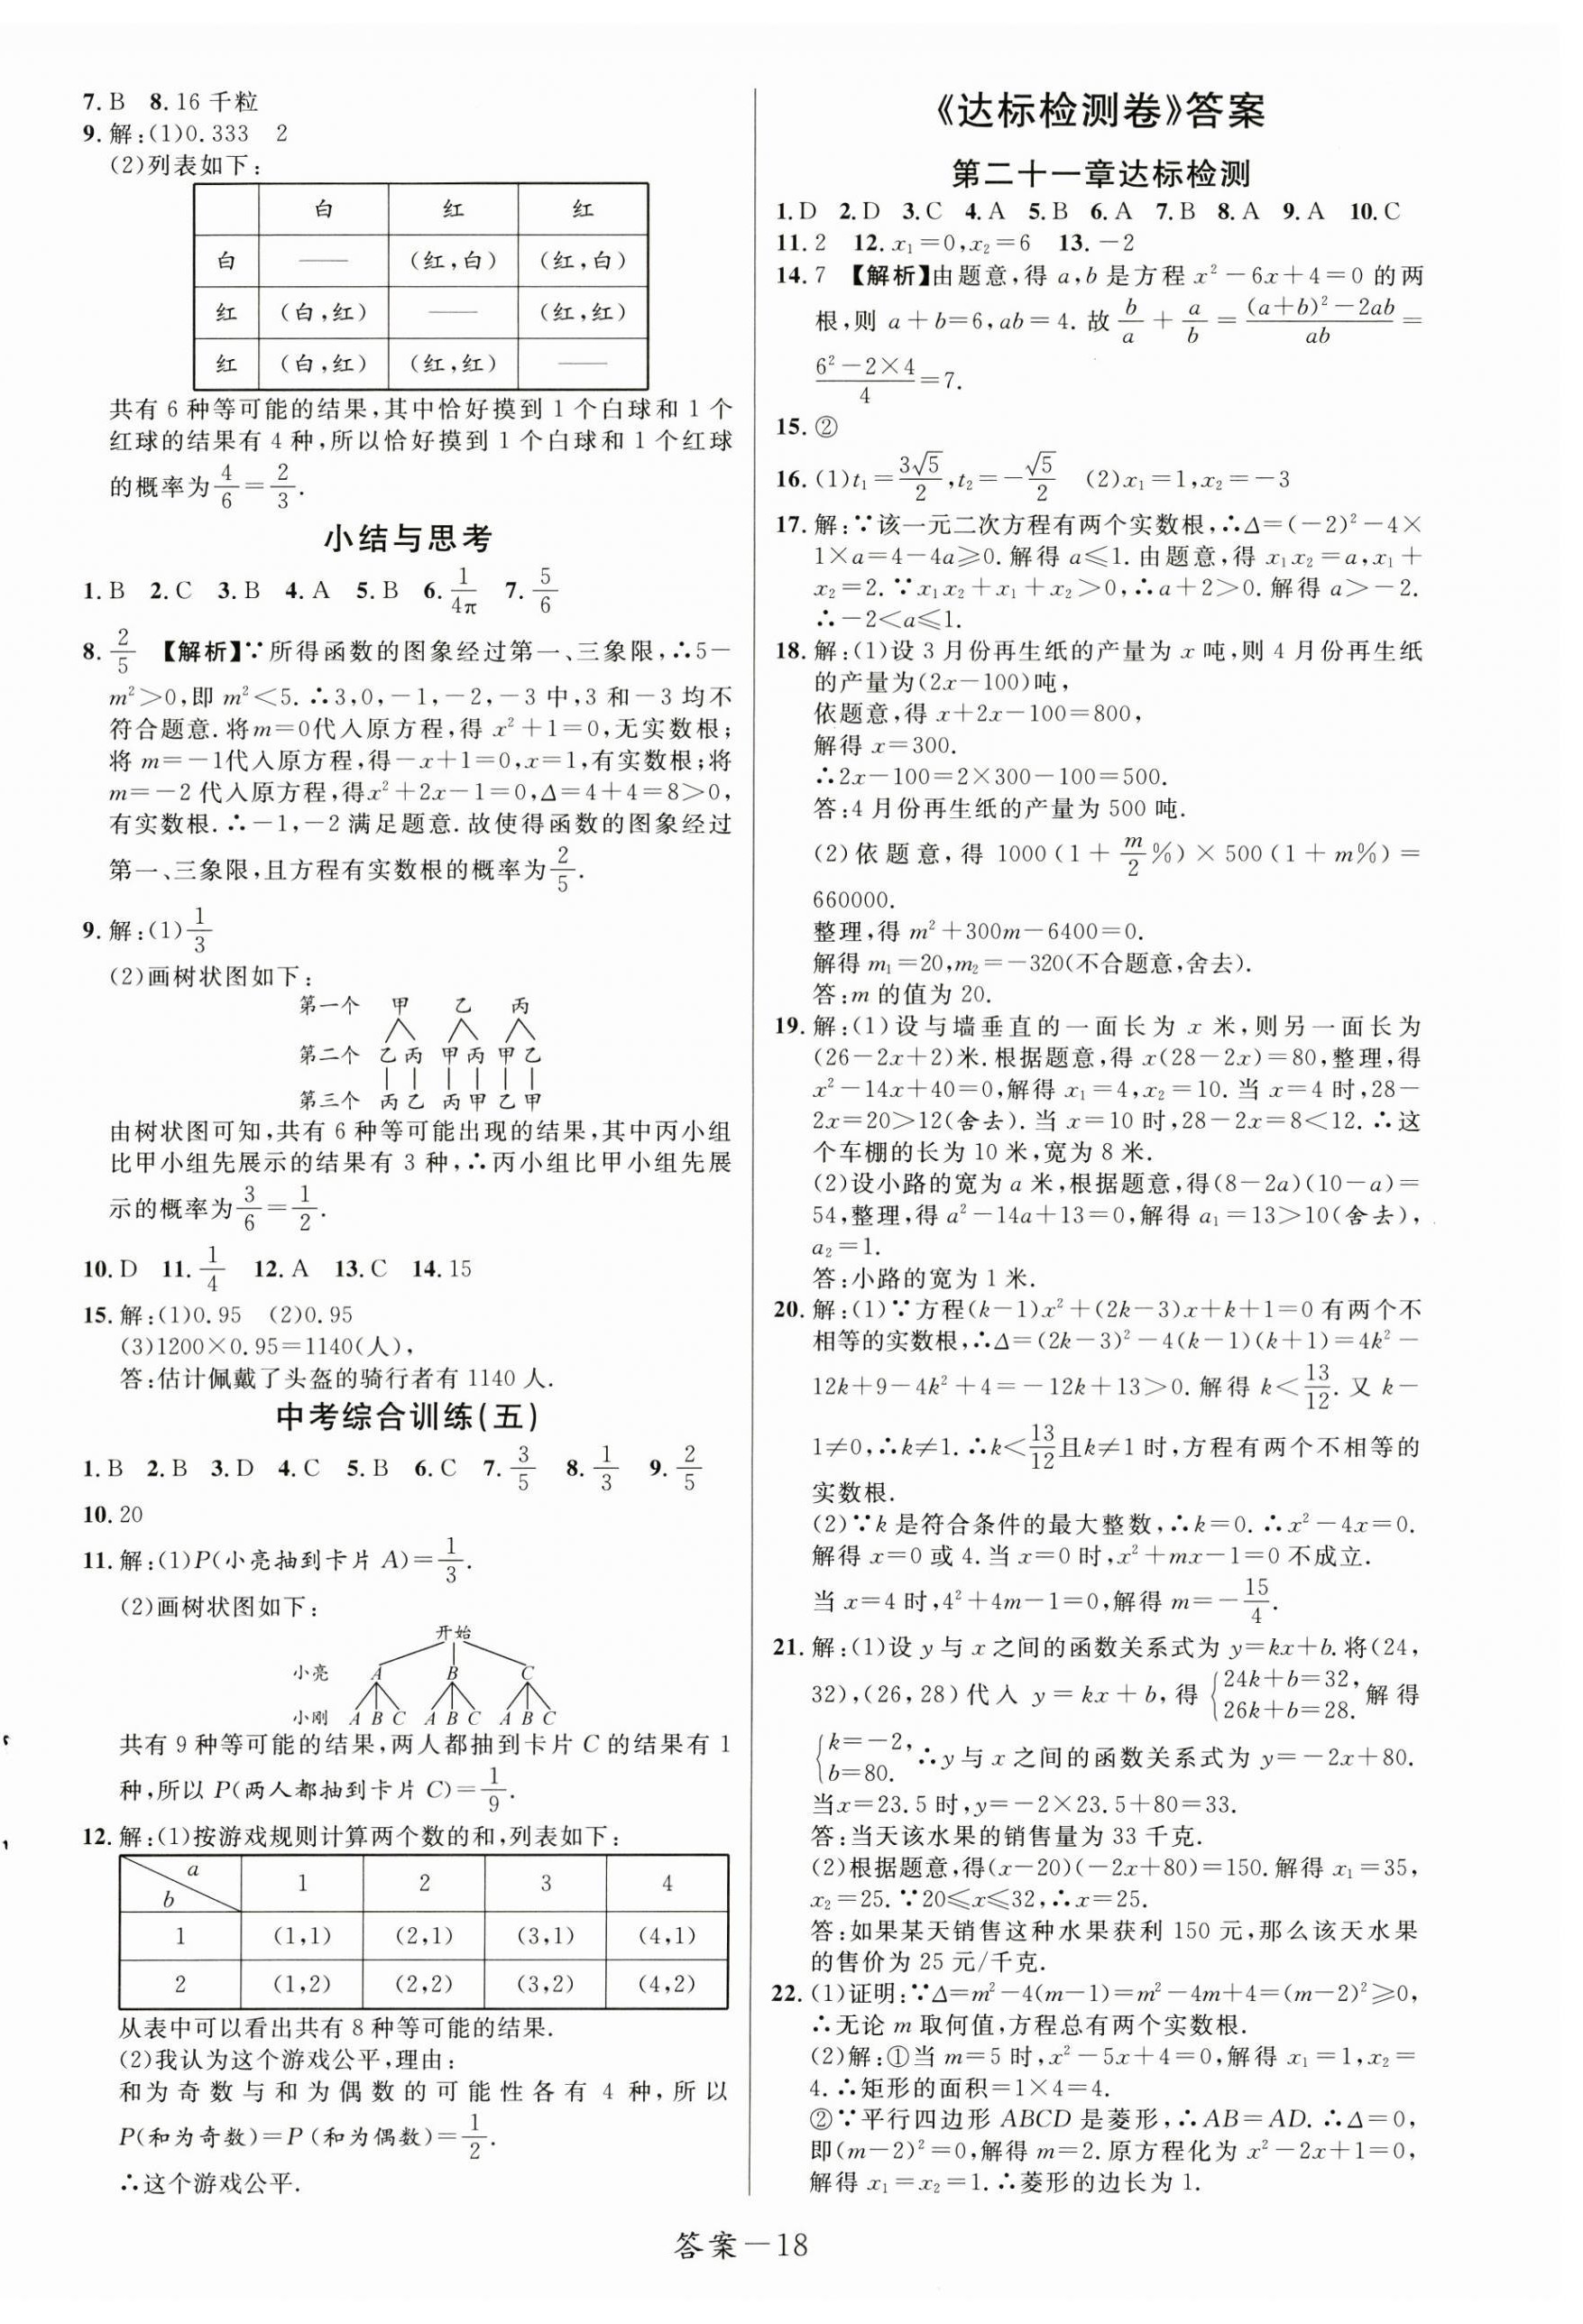 7.B  8.16 千粒
9.解:(1)0.333  2
(2)列表如下:
白 红 红
白 —— (红,白) (红,白)
红 (白,红) —— (红,红)
红 (白,红) (红,红) ——
共有 6 种等可能的结果,其中恰好摸到 1 个白球和 1 个
红球的结果有 4 种,所以恰好摸到 1 个白球和 1 个红球
的概率为4/6=2/3.
小结与思考
1.B  2.C  3.B  4.A  5.B  6.1/4π  7.5/6
8.2/5 【解析】∵所得函数的图象经过第一、三象限,∴5-
m²>0,即 m²<5.∴3,0,-1,-2,-3 中,3 和-3 均不
符合题意.将m=0代入原方程,得 x²+1=0,无实数根;
将 m=-1代入原方程,得-x+1=0,x=1,有实数根;将
m=-2 代入原方程,得x²+2x-1=0,Δ=4+4=8>0,
有实数根.∴-1,-2 满足题意.故使得函数的图象经过
第一、三象限,且方程有实数根的概率为2/5.
9.解:(1)1/3
(2)画树状图如下:
第一个 甲 乙 丙
第二个 乙 丙 甲 丙 甲 乙
第三个 丙 乙 丙 甲 乙 甲
由树状图可知,共有 6 种等可能出现的结果,其中丙小组
比甲小组先展示的结果有 3 种,∴丙小组比甲小组先展
示的概率为3/6=1/2.
10.D  11.1/4  12.A  13.C  14.15
15.解:(1)0.95  (2)0.95
(3)1200×0.95=1140(人),
答:估计佩戴了头盔的骑行者有 1140 人.
中考综合训练(五)
1.B  2.B  3.D  4.C  5.B  6.C  7.3/5  8.1/3  9.2/5
10.20
11.解:(1)P(小亮抽到卡片 A)=1/3.
(2)画树状图如下:
开始
小亮 A B C
小刚 A B C A B C A B C
共有 9 种等可能的结果,两人都抽到卡片 C 的结果有 1
种,所以 P(两人都抽到卡片 C)=1/9.
12.解:(1)按游戏规则计算两个数的和,列表如下:
a b 1 2 3 4
1 (1,1) (2,1) (3,1) (4,1)
2 (1,2) (2,2) (3,2) (4,2)
从表中可以看出共有 8 种等可能的结果.
(2)我认为这个游戏公平,理由:
和为奇数与和为偶数的可能性各有 4 种,所以
P(和为奇数)=P(和为偶数)=1/2.
∴这个游戏公平.
《达标检测卷》答案
第二十一章达标检测
1.D  2.D  3.C  4.A  5.B  6.A  7.B  8.A  9.A  10.C
11.2  12.x₁=0,x₂=6  13.-2
14.7 【解析】由题意,得 a,b 是方程 x²-6x+4=0 的两
根,则 a+b=6,ab=4.故 b/a+a/b=((a+b)²-2ab)/ab=
(6²-2×4)/4=7.
15.②
16.(1)t₁=3√5/2,t₂=-√5/2  (2)x₁=1,x₂=-3
17.解:∵该一元二次方程有两个实数根,∴Δ=(-2)²-4×
1×a=4-4a≥0.解得 a≤1.由题意,得 x₁x₂=a,x₁+
x₂=2.∵x₁x₂+x₁+x₂>0,∴a+2>0.解得 a>-2.
∴-2<a≤1.
18.解:(1)设 3 月份再生纸的产量为 x 吨,则 4 月份再生纸
的产量为(2x-100)吨,
依题意,得 x+2x-100=800,
解得 x=300.
∴2x-100=2×300-100=500.
答:4 月份再生纸的产量为 500 吨.
(2)依题意,得 1000(1+m/2%)×500(1+m%)=
660000.
整理,得 m²+300m-6400=0.
解得 m₁=20,m₂=-320(不合题意,舍去).
答:m 的值为 20.
19.解:(1)设与墙垂直的一面长为 x 米,则另一面长为
(26-2x+2)米.根据题意,得 x(28-2x)=80,整理,得
x²-14x+40=0,解得 x₁=4,x₂=10.当 x=4 时,28-
2x=20>12(舍去).当 x=10 时,28-2x=8<12.∴这
个车棚的长为 10 米,宽为 8 米.
(2)设小路的宽为 a 米,根据题意,得(8-2a)(10-a)=
54,整理,得 a²-14a+13=0,解得 a₁=13>10(舍去),
a₂=1.
答:小路的宽为 1 米.
20.解:(1)∵方程(k-1)x²+(2k-3)x+k+1=0 有两个不
相等的实数根,∴Δ=(2k-3)²-4(k-1)(k+1)=4k²-
12k+9-4k²+4=-12k+13>0.解得 k<13/12.又 k-
1≠0,∴k≠1.∴k<13/12且k≠1 时,方程有两个不相等的
实数根.
(2)∵k 是符合条件的最大整数,∴k=0.∴x²-4x=0.
解得 x=0 或 4.当 x=0 时,x²+mx-1=0 不成立.
当 x=4 时,4²+4m-1=0,解得 m=-15/4.
21.解:(1)设 y 与 x 之间的函数关系式为 y=kx+b.将(24,
32),(26,28)代入 y=kx+b,得{24k+b=32, 26k+b=28. 解得
{k=-2, b=80. ∴y 与 x 之间的函数关系式为 y=-2x+80.
当x=23.5 时,y=-2×23.5+80=33.
答:当天该水果的销售量为 33 千克.
(2)根据题意,得(x-20)(-2x+80)=150.解得 x₁=35,
x₂=25.∵20≤x≤32,∴x=25.
答:如果某天销售这种水果获利 150 元,那么该天水果
的售价为 25 元/千克.
22.(1)证明:∵Δ=m²-4(m-1)=m²-4m+4=(m-2)²≥0,
∴无论 m 取何值,方程总有两个实数根.
(2)解:①当 m=5 时,x²-5x+4=0,解得 x₁=1,x₂=
4.∴矩形的面积=1×4=4.
②∵平行四边形 ABCD 是菱形,∴AB=AD.∴Δ=0,
即(m-2)²=0,解得 m=2.原方程化为 x²-2x+1=0,
解得 x₁=x₂=1.∴菱形的边长为 1.
答案-18